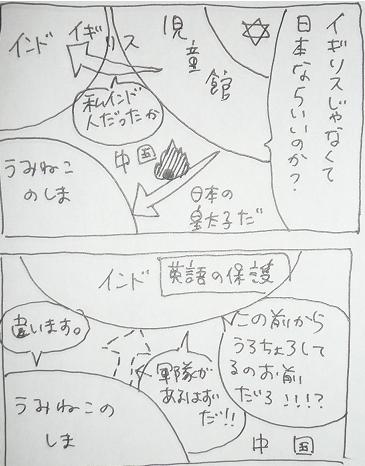 イギリスじゃなくて
日本ならいいのか？
児童館
イギリス
インド
私インド
人だったか
中国
日本の
皇太子だ
うみねこ
のしま
インド
英語の保護
この前から
うろちょろして
るのお前
だろ!!!?
軍隊が
あるはず
だ!!
違います。
うみねこの
しま
中国